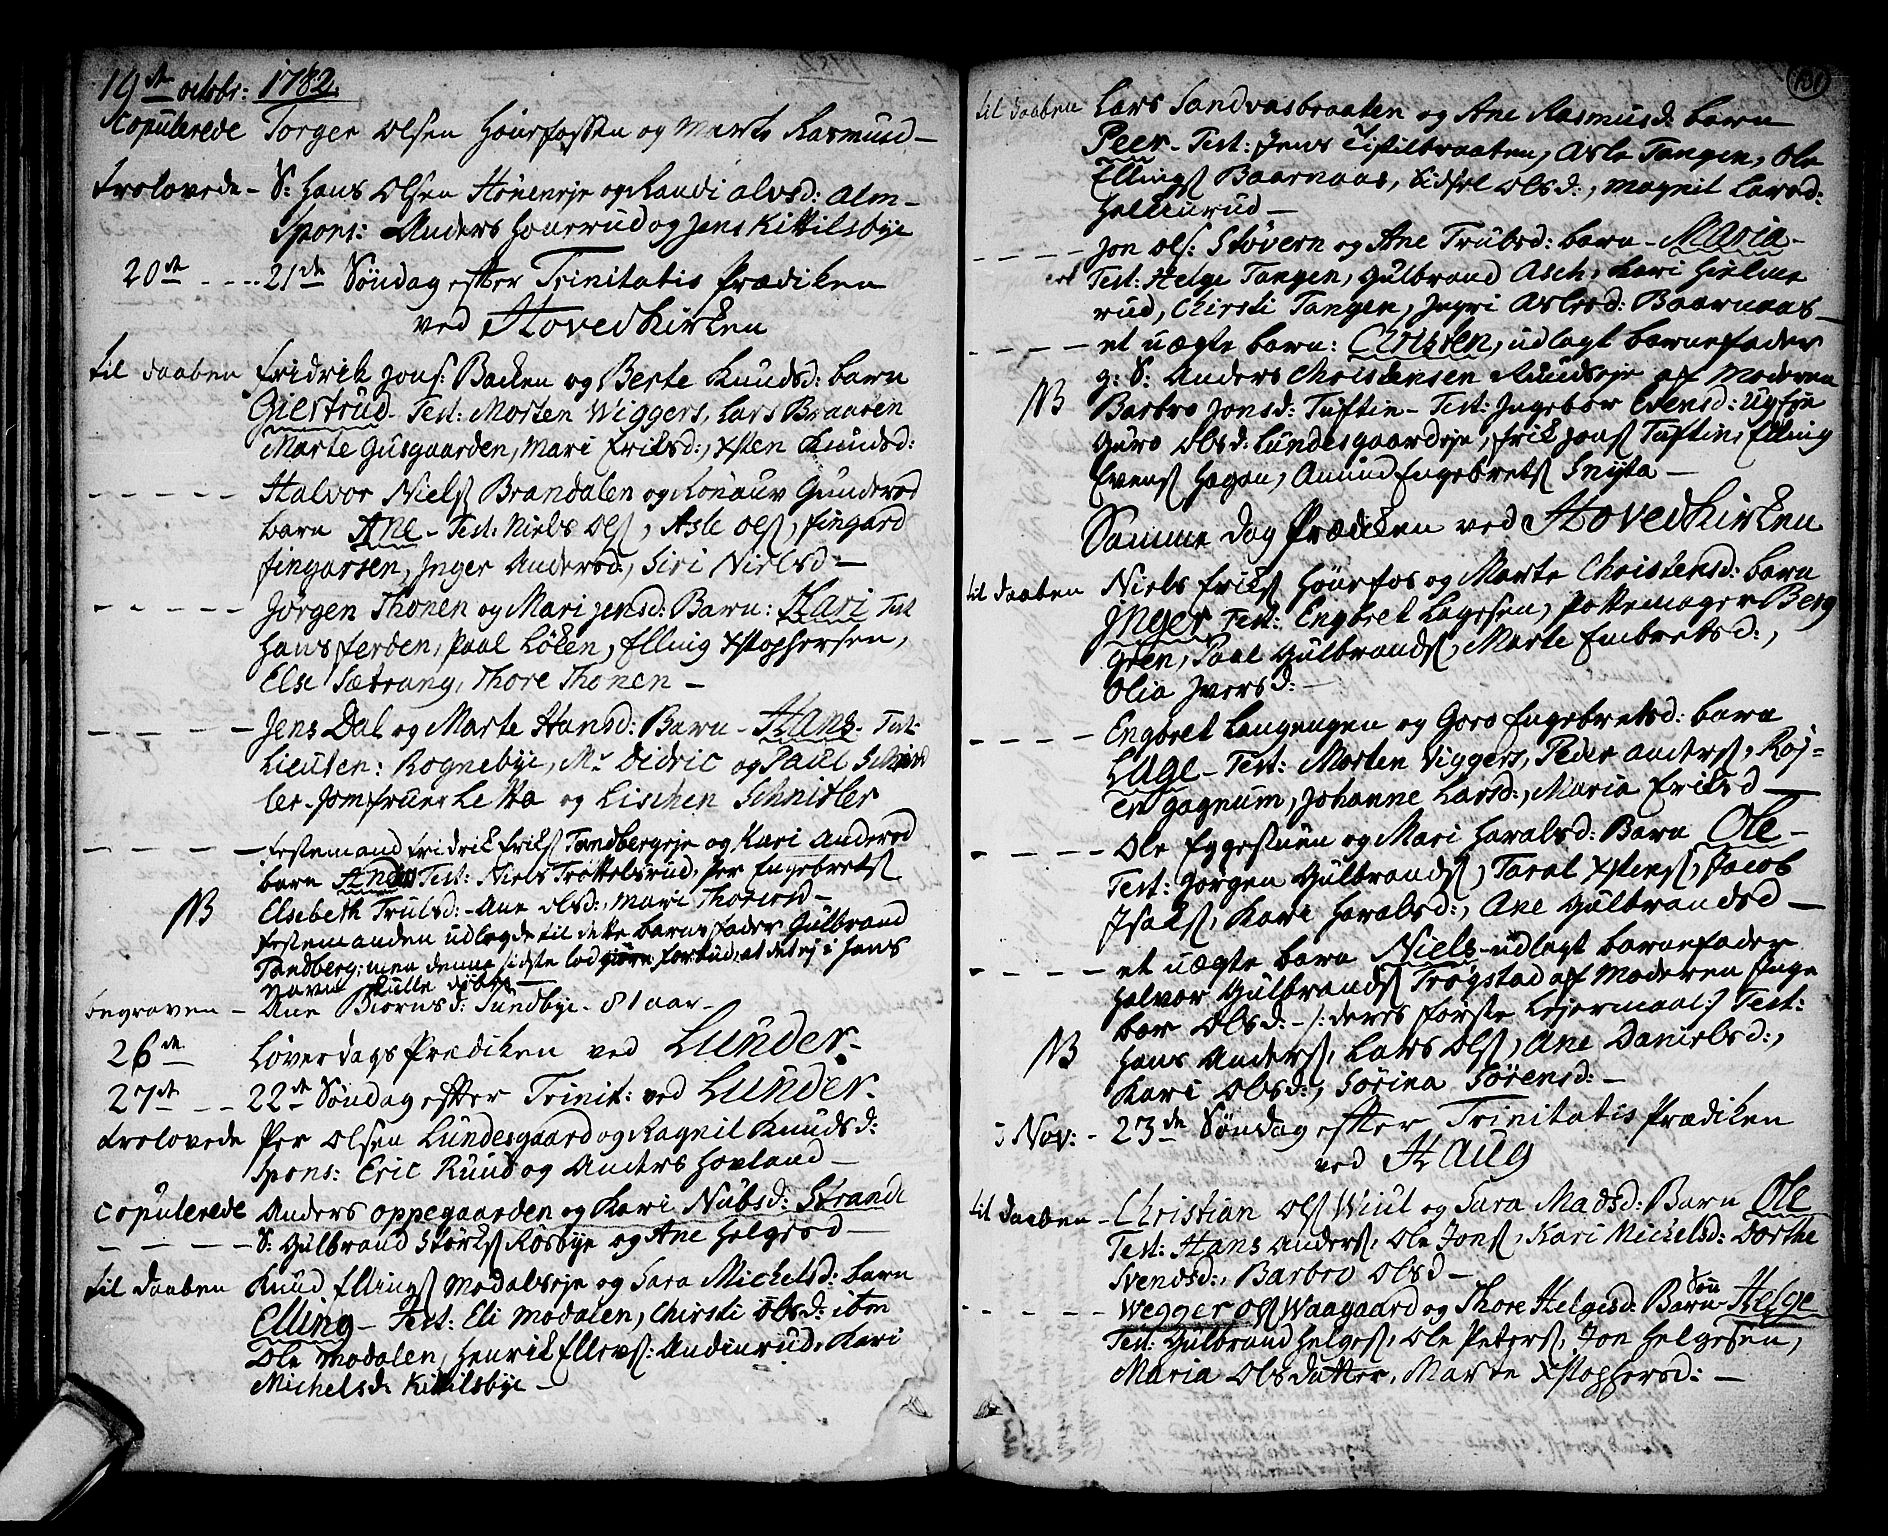 19de octobr: 1782.
Copulerede Torger Olsen Hönefossen og Marte Rasmusd –
trolovede – S: Hans Olsen Höneneje og Randi Alvsd: Alm –
Spons: Anders Honerud og Jens Kittilsbye
20de - - - - 21de Söndag efter Trinitatis Prædiken
ved Hovedkirken
til daaben Fridrik Jons: Backen og Berte Knudsd: barn
Giertrud – Test: Morten Wiggers, Lars Braaten
Marte Gusgaarden, Mari Eriksd:, Xsten Knudsd:
– – – – – Halvor Niels: Brandalen og Rönauv Gundersd
barn Ane – Test: Niels Ols:, Asle Ols:, Fingard
Fingarsen, Inger Andersd:, Siri Nielsd –
– – – – – Jörgen Thonen og Mari Jensd: Barn: Kari Test
Hans Færden, Paal Löken, Elling Xstophersen,
Else Sætrang, Thore Thonen –
– – – – – Jens Dal og Marte Hansd: Barn – Hans – Test:
Lieuten: Rognebye, Mr Didric og Paul Schnid
ler – Jomfruer Letta og Lischen Schnitler
– – – – – Festemand Fridrik Eriks: Tandbergeje og Kari Andersd
barn Anders Test: Niels Trøttelsrud, Per Engebrets:
NB Elsebeth Trulsd: – Ane Olsd:, Mari Thoresd –
Festemanden udlagde til dette barns fader Gulbrand
Tandberg: men denne sidste lod giöre forbud, at det ej i hans
navn skulle döbes –
begraven – Ane Biornsd: Sundbye – 81 aar –
26de Löverdags Prædiken ved Lunder.
27de - - 22de Söndag efter Trinit: ved Lunder.
trolovede Per Olsen Lundesgaard og Ragnil Knudsd:
Spons: Eric Ruud og Anders Hovland –
Copulerede Anders Oppegaarden og Kari Nubsd: Strande
– – – – – S: Gulbrand Störks: Rösbye og Ane Helgesd –
til daaben Knud Ellings: Modalseje og Sara Michelsd: barn
Elling – Test: Eli Modalen, Chirsti Olsd: ibm
Ole Modalen, Henrik Ellevs: Andinrud, Kari
Michelsd: Kittilsbye –
131
til daaben Lars Sandvasbraaten og Ane Rasmusd: barn
Peer – Test: Jens Tistilbraaten, Asle Tangen, Ole
Ellings: Baarnaas, Sidsel Olsd:, Magnil Larsd:
Hellinrud –
– – – – Jon Ols: Stövern og Ane Trulsd: barn – Maria –
Test: Helge Tangen, Gulbrand Asch, Kari Hielme
rud, Chirsti Tangen, Ingri Aslesd: Baarnaas –
– – – – et uægte barn: Christen, udlagt barnefader
g: S: Anders Christensen Ruudseje af Moderen
NB Barbro Jonsd: Tuftin – Test: Ingebor Evensd:
Guro Olsd: Lundesgaardeje, Erik Jons: Tuftin, Elling
Evens: Hagan, Amund Engebrets: Snysta –
Samme Dag Prædiken ved Hovedkirken
til daaben Niels Eriks: Hönefos og Marte Christensd: barn
Inger Test: Engbret Lagesen, Pottemager Berg
gren, Paal Gulbrands:, Marte Embretsd:,
Olia Iversd: –
– – – – Engbret Langengen og Goro Engebretsd: barn
Lage – Test: Morten Viggers, Peder Anders:, Røj-
er Gagnum, Johanne Larsd:, Maria Eriksd –
– – – – Ole Eggestuen og Mari Haralsd: Barn Ole –
Test: Jörgen Gulbrands:, Taral Xstens:, Jacob
Isaks:, Kari Haralsd:, Ane Gulbrandsd –
– – – – et uægte barn Niels – udlagt barnefader
Halvor Gulbrands: Trögstad af Moderen Inge
bor Olsd: – /: deres förste Lejermaal :/ Test:
NB Hans Anders:, Lars Ols:, Ane Danielsd:,
Kari Olsd:, Sörina Sörensd: –
3 Nov: – 23de Söndag efter Trinitatis Prædiken
ved Haug
til daaben – Christian Ols: Wiul og Sara Madsd: Barn Ole
Test: Hans Anders:, Ole Jons:, Kari Michelsd: Dorthe
Svendsd:, Barbro Olsd –
– – – – Wegger Ols: Waagaard og Thore Helgesd: Barn – Helge
Test: Gulbrand Helges:, Ole Peters:, Jon Helgesen,
Maria Olsdatter, Marte Xstophersd: –